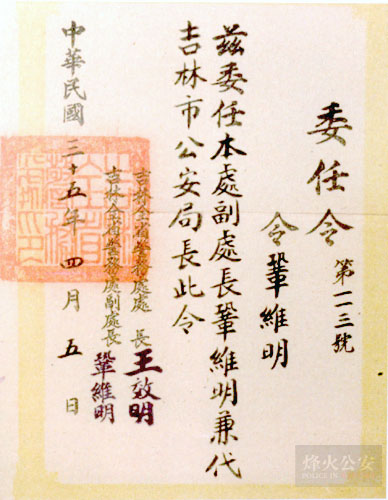 委任令
第一一三號
令鞏維明
茲委任本處副處長鞏維明兼代
吉林市公安局長此令
吉林全省警務處處長 王效明
吉林全省警務處副處長 鞏維明
中華民國三十五年四月五日
烽火公安